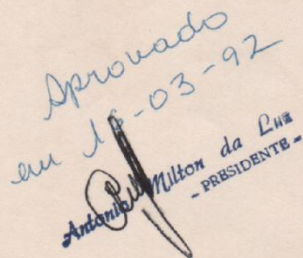 Aprovado
em 16-03-92
Antonio Milton da Luz
- PRESIDENTE -